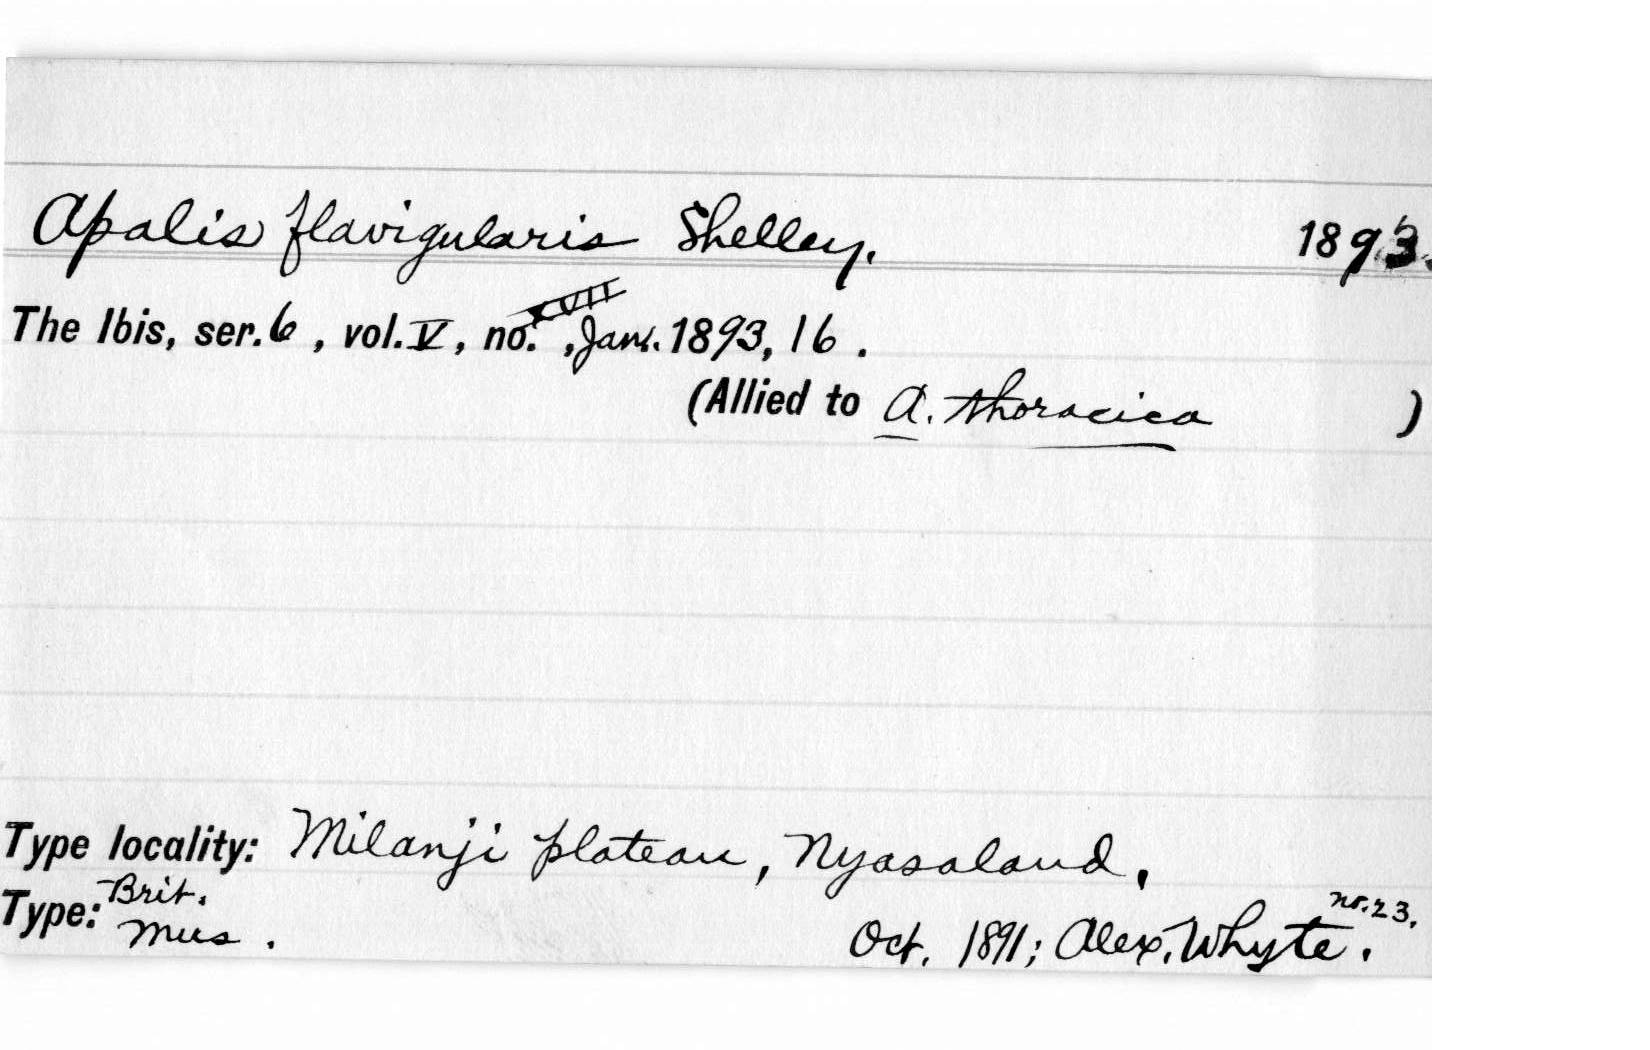 Apalis flavigularis Shelley. 1893.
The Ibis, ser. 6, vol. V, no. XVII, Jan. 1893, 16.
(Allied to A. thoracica )
Type locality: Milanji plateau, Nyasaland,
Type: Brit. Mus. Oct. 1891; Alex. Whyte. no. 23.